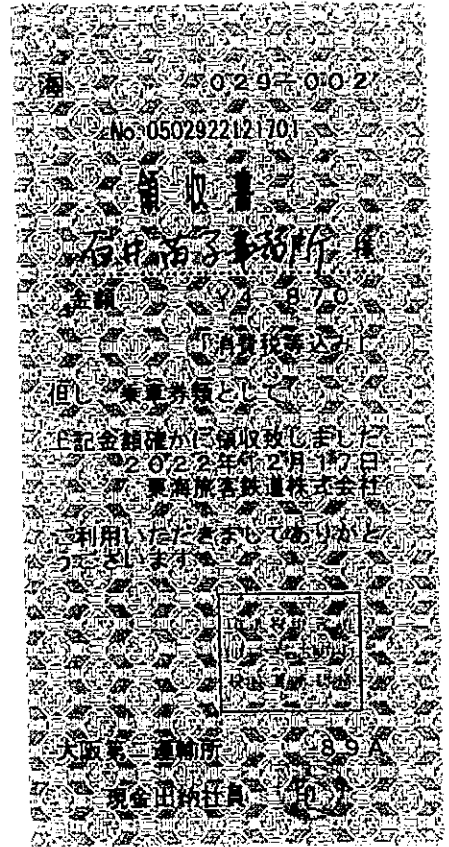 海 029-002
No.0502922121701
領収書
石井苗子事務所 様
金額 ¥3,870
「消費税等込み」
但し、乗車券類として
上記金額確かに領収致しました
2022年12月17日
東海旅客鉄道株式会社
ご利用いただきましてありがと
うございます
大阪第二運輸所 89A
現金出納社員 印